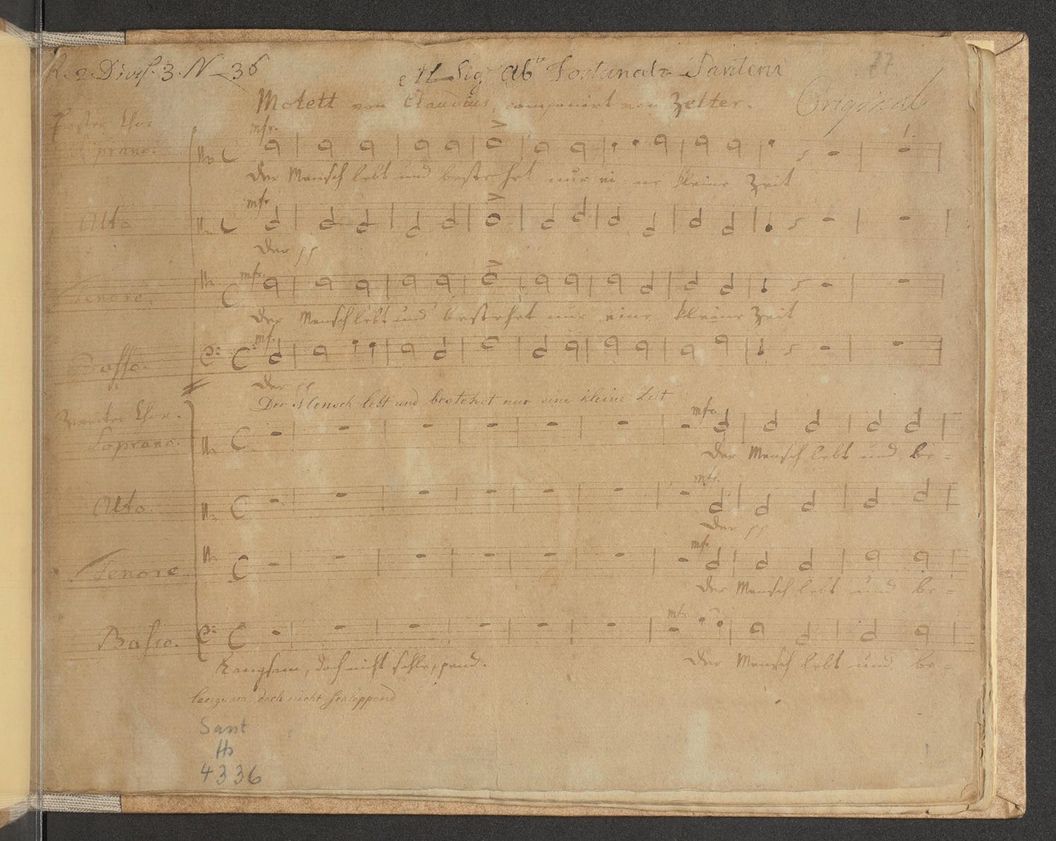 R. 2 Divis. 3. N 36
Al Sig. Ab.te Fortunato Santini
77
Motett von Claudius, componirt von Zelter.
Original
Erster Chor
Soprano.
mfr.
Der Mensch lebt und bestehet nur ei ne kleine Zeit
Alto
mfr
Der
Tenore.
mfr.
Der Mensch lebt und bestehet nur eine kleine Zeit
Basso.
mf.
Der
Der Mensch lebt und bestehet nur eine kleine Zeit
Zweiter Chor.
Soprano.
mfr.
Der Mensch lebt und be-
Alto.
mfr.
Der
Tenore
mfr.
Der Mensch lebt und be-
Basso.
mfr.
Der Mensch lebt und be-
Langsam, doch nicht schleppend.
langsam doch nicht schleppend
Sant
Hs
4336